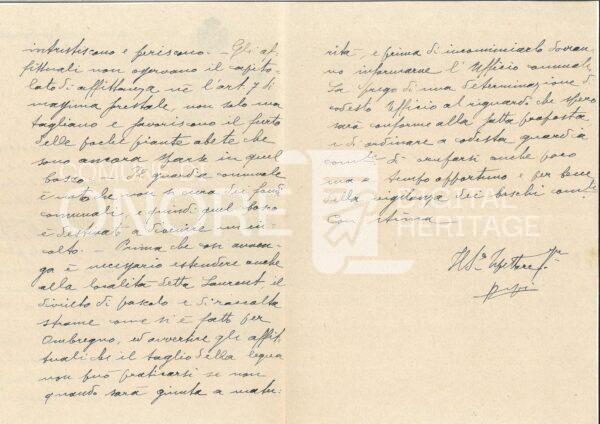 intristiscono e periscono. - Gli af-
fittuali non osservano il capito-
lato di affittanza nè l'art. 7 di
massima forestale, non solo ma
tagliano e favoriscono il furto
delle poche piante abete che
sono ancora sparse in quel
bosco. - Il guardia comunale
è noto che non si cura dei fondi
comunali e quindi quel bosco
è destinato a divenire un in-
colto. - Prima che ciò avven-
ga è necessario estendere anche
alla località detta Lauront, il
divieto di pascolo e di raccolta
strame come si è fatto per
Ombregno, ed avvertire gli affit-
tuali che il taglio della legna
non può praticarsi se non
quando sarà giunta a matu-
rità, e prima di incominciarlo dovran-
no informarne l'Ufficio comunale.
La prego di una determinazione di
codesto Ufficio al riguardo che spero
sarà conforme alla fatta proposta
e di ordinare a codesta guardia
com.le di occuparsi anche poco
ma a tempo opportuno e per bene
della vigilanza dei boschi com.li
Con stima
Il S. Ispettore f.le
COMUNE
ONORE
DIGITAL
HERITAGE